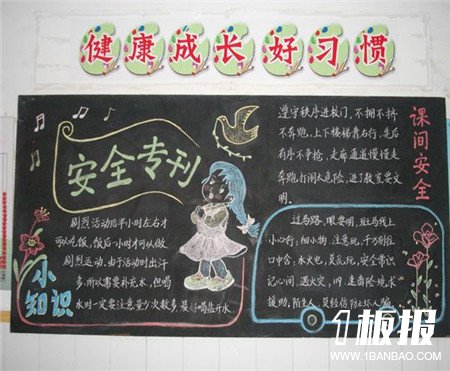 健康成长好习惯
安全专刊
小
知识
剧烈活动后半小时左右才
可以吃饭,饭后一小时才可以做
剧烈运动,由于活动时出汗
多,所以需要补充水,但喝
水时一定要注意量少次数多,最好喝盐开水
课间安全
遵守秩序进校门,不拥不挤
不奔跑,上下楼梯靠右行,先后
有序不争抢,走廊通道慢慢走
奔跑打闹太危险,进了教室要文
明。
过马路,眼要明,斑马线上
小心行,细小物,注意玩,千万别往
口中含,水火电,莫乱玩,安全常识
记心间,遇火灾,
援助,陌生人,莫轻信防止坏人骗
1板报
WWW.1BANBAO.COM